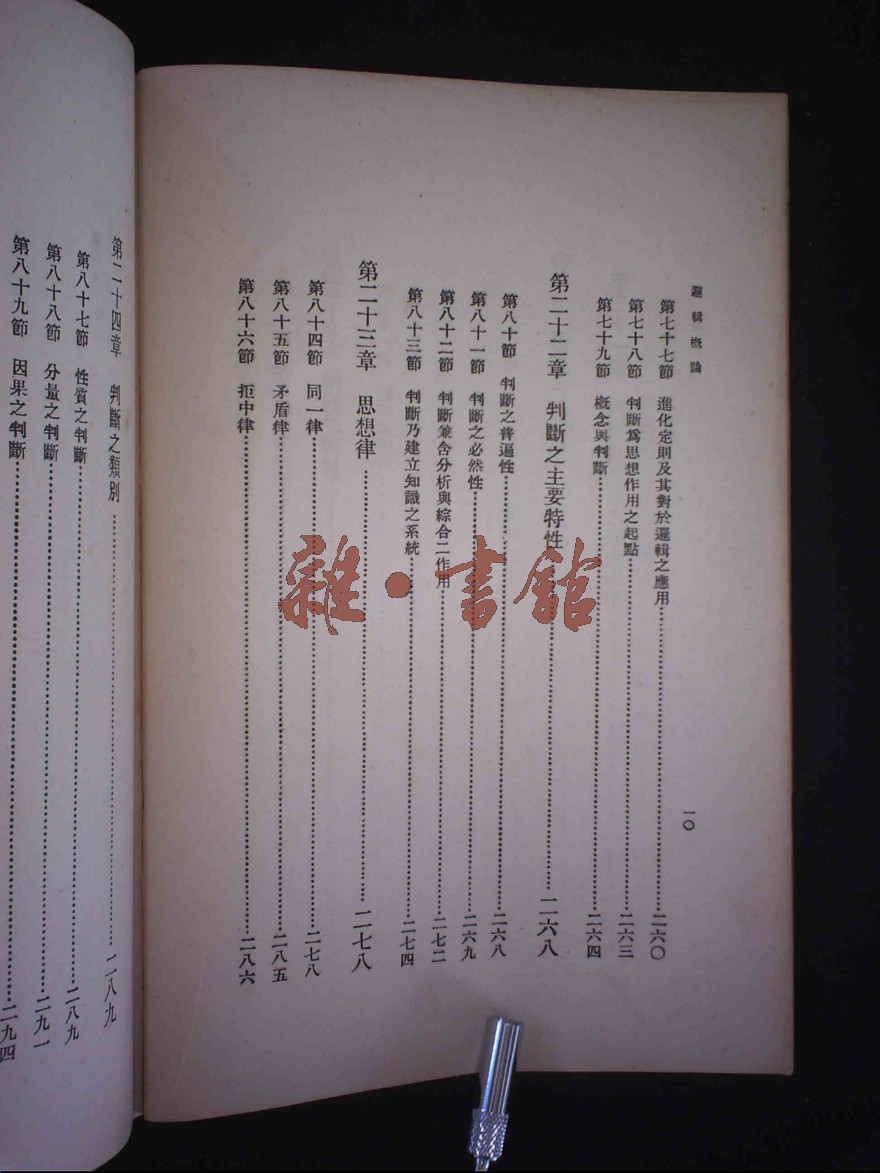 邏輯概論
一〇
第七十七節 進化定則及其對於邏輯之應用……二六〇
第七十八節 判斷爲思想作用之起點……二六三
第七十九節 概念與判斷……二六四
第二十二章 判斷之主要特性……二六八
第八十節 判斷之普遍性……二六八
第八十一節 判斷之必然性……二六九
第八十二節 判斷兼含分析與綜合二作用……二七二
第八十三節 判斷乃建立知識之系統……二七四
第二十三章 思想律……二七八
第八十四節 同一律……二七八
第八十五節 矛盾律……二八五
第八十六節 拒中律……二八六
第二十四章 判斷之類別……二八九
第八十七節 性質之判斷……二八九
第八十八節 分量之判斷……二九一
第八十九節 因果之判斷……二九四
雜·書館